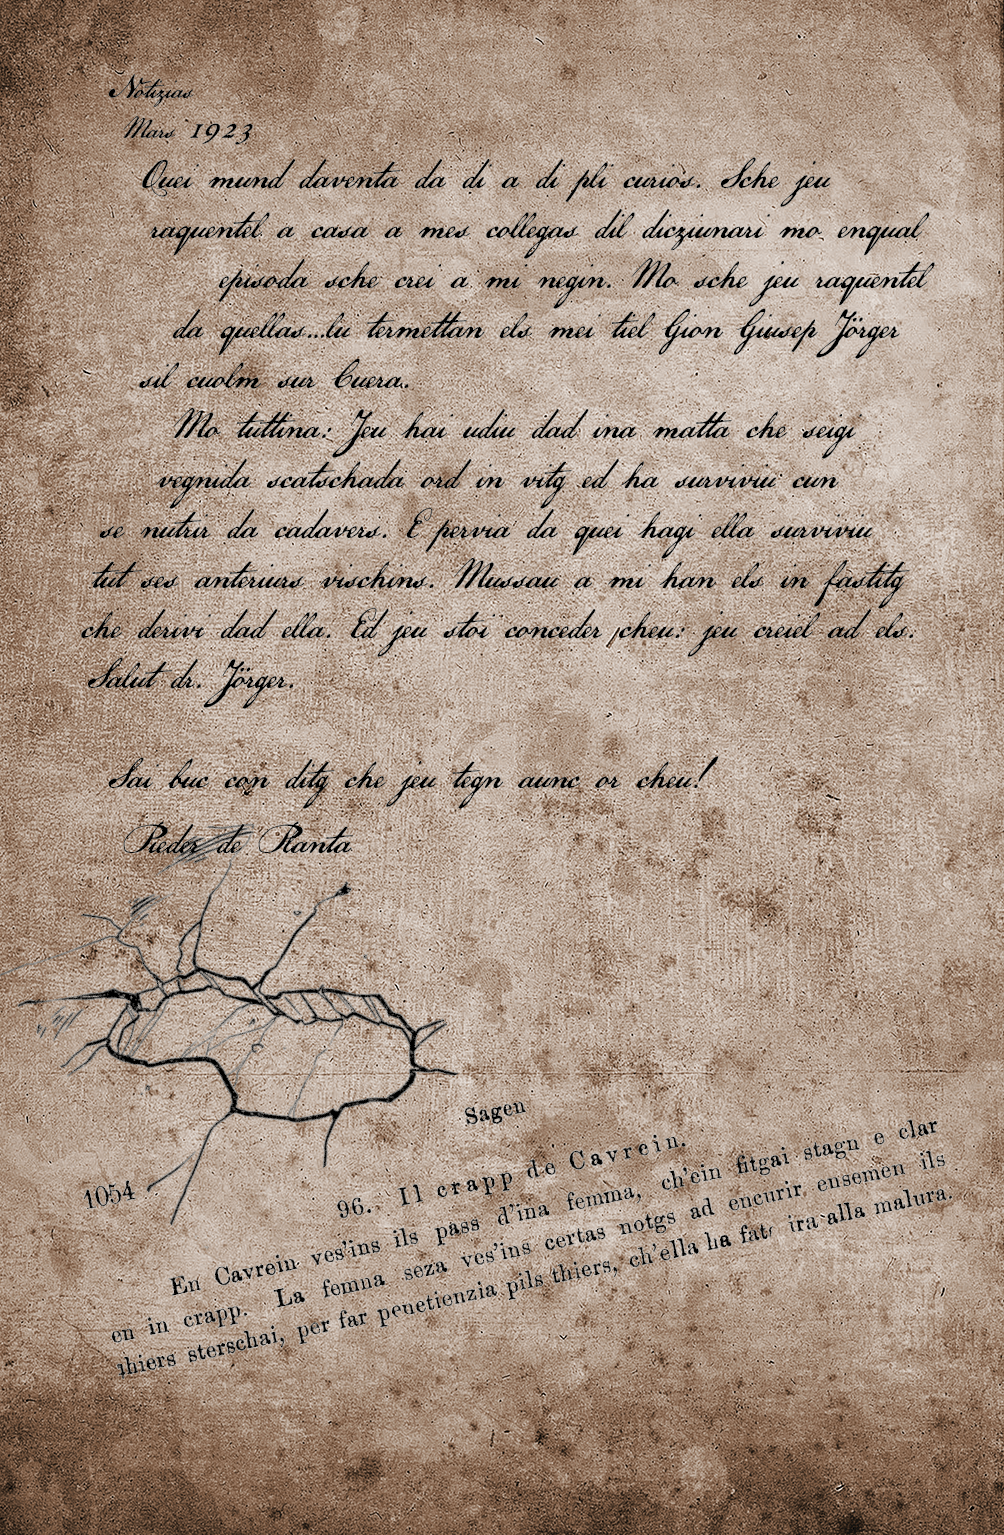 Notizias
Mars 1923
Quei mund daventa da di a di pli curiòs. Sche jeu
raquentel a casa a mes collegas dil dicziunari mo enqual
episoda sche crei a mi negin. Mo sche jeu raquentel
da quellas...lu termettan els mei tiel Gion Giusep Jörger
sil cuolm sur Cuera.
Mo tuttina: Jeu hai udiu dad ina matta che seigi
vegnida scatschada ord in vitg ed ha surviviu cun
se nutrir da cadavers. E pervia da quei hagi ella surviviu
tut ses anteriurs vischins. Mussau a mi han els in fastitg
che derivi dad ella. Ed jeu stoi conceder cheu: jeu creiel ad els.
Salut dr. Jörger.
Sai buc con ditg che jeu tegn aunc or cheu!
Pieder de Planta
Sagen
1054
96. Il crapp de Cavrein.
En Cavrein ves'ins ils pass d'ina femma, ch'ein fitgai stagn e clar
en in crapp. La femna seza ves'ins certas notgs ad encurir ensemen ils
thiers sterschai, per far penetienzia pils thiers, ch'ella ha fatg ira alla malura.